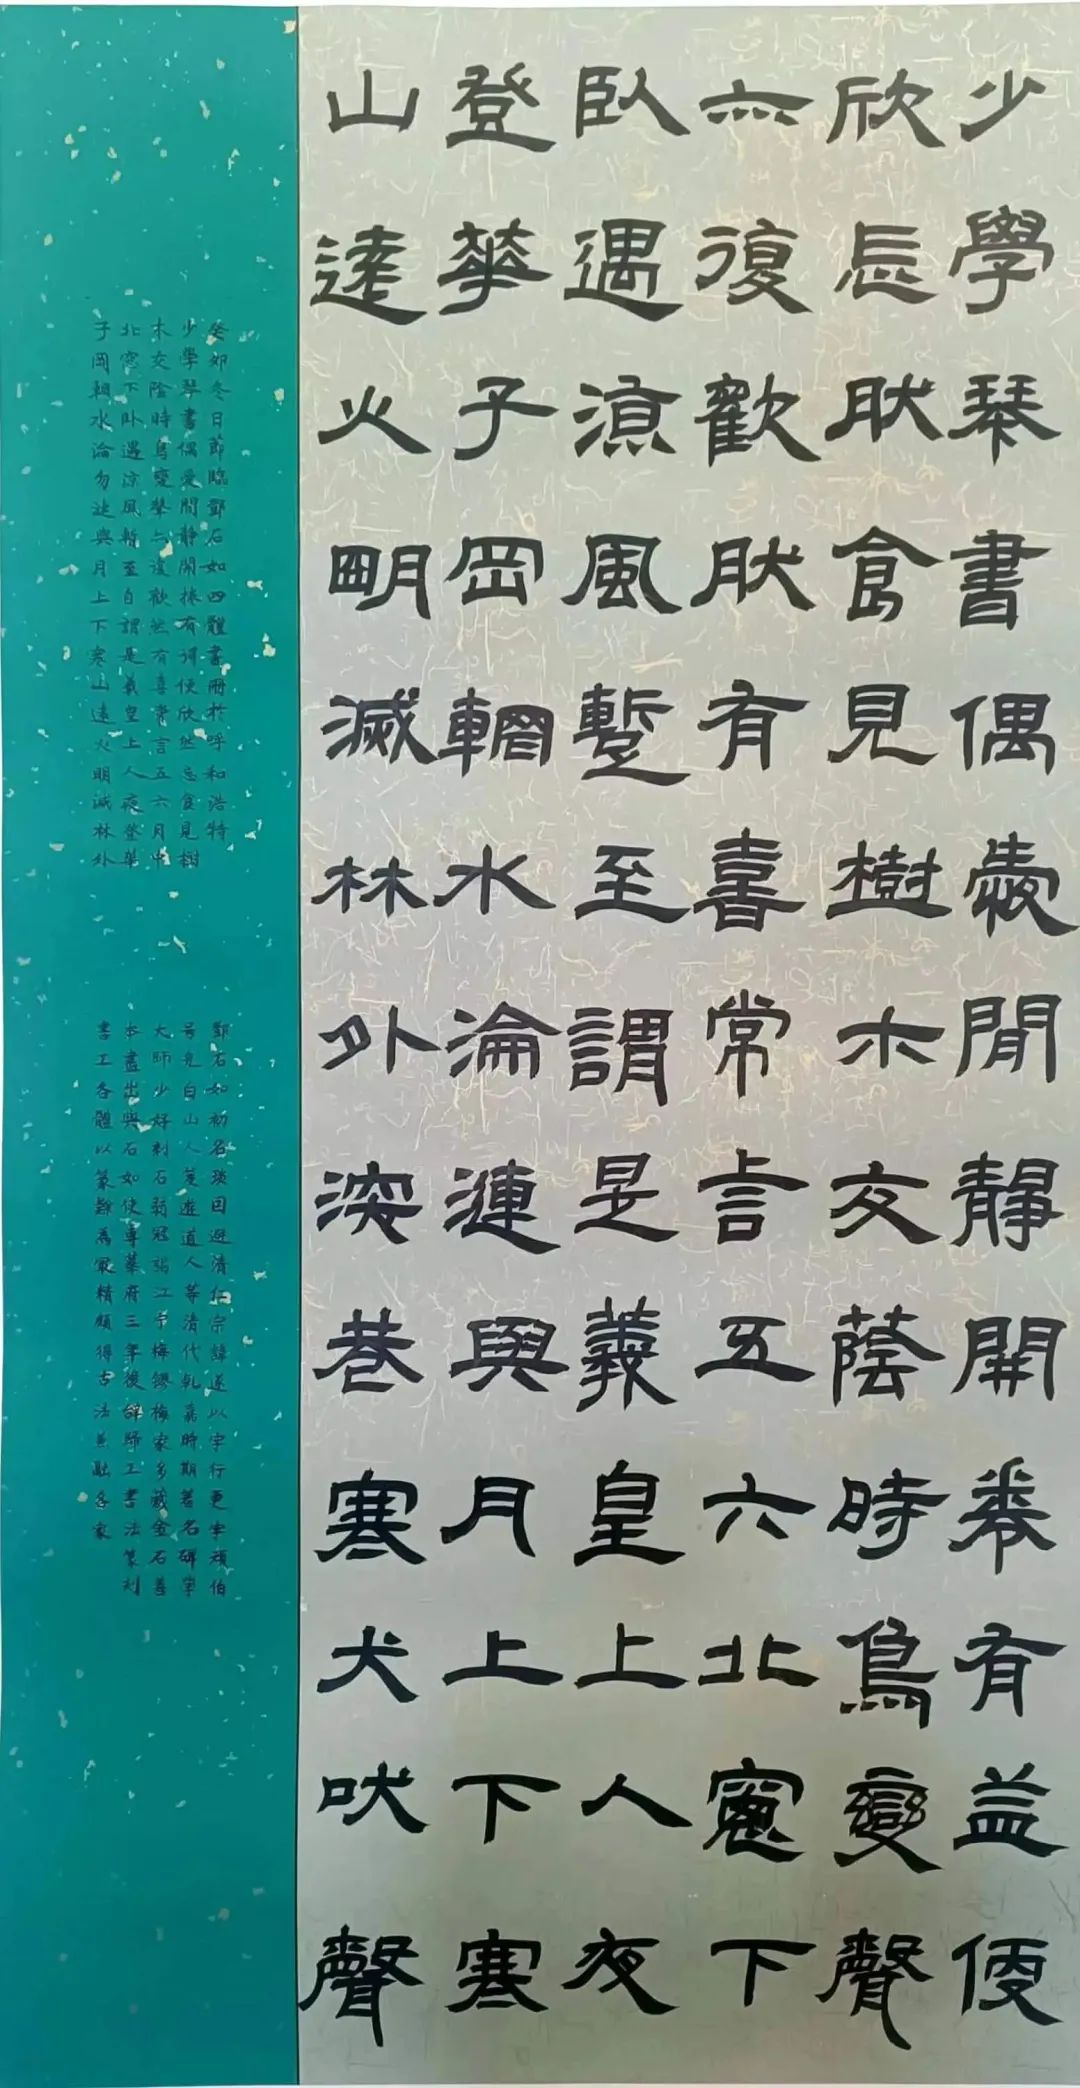 少學琴書偶愛閒靜開卷有益便
欣忘肰食見樹木交蔭時鳥變聲
亦復歡肰有喜常言五六北窗下
臥遇涼風暫至謂是羲皇上人夜
登華子岡輞水淪漣與月上下寒
山遠火明滅林外深巷寒犬吠聲
癸卯冬日節臨鄧石如四體書冊於呼和浩特
少學琴書偶愛閒靜開捲有得便欣然忘食見樹
木交陰時鳥變聲亦復歡然有喜常言五六月中
北窓下卧遇涼風暫至自謂是羲皇上人夜登華
子岡輞水淪勿涟與月上下寒山遠火明滅林外
鄧石如初名琰因避清仁宗諱遂以字行更字頑伯
号完白山人笈遊道人等清代乾嘉時期著名碑学
大師少好刻石弱冠江宁梅鏐梅家多藏金石善
本盡出與石如使專摹府三年後辞歸工書法篆刻
書工各體以篆隸為最精頗得古法兼融各家